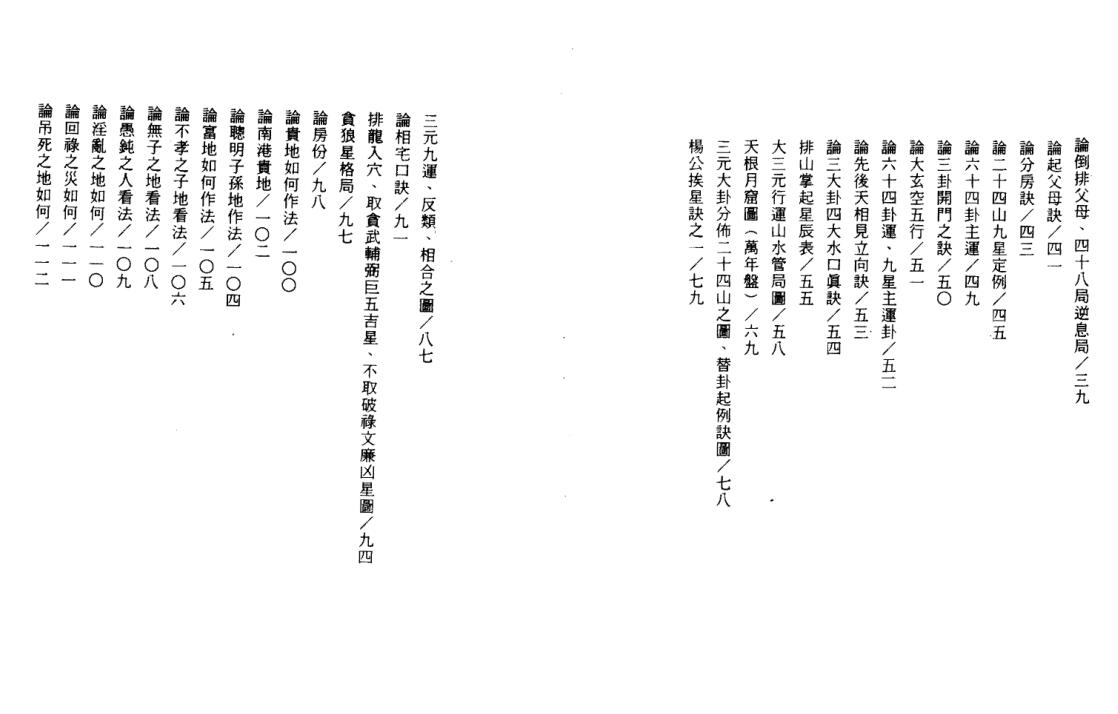 論倒排父母、四十八局逆息局／三九
論起父母訣／四一
論分房訣／四三
論二十四山九星定例／四五
論六十四卦主運／四九
論三卦開門之訣／五〇
論大玄空五行／五一
論六十四卦運、九星主運卦／五二
論先後天相見立向訣／五三
論三大卦四大水口眞訣／五四
排山掌起星辰表／五五
大三元行運山水管局圖／五八
天根月窟圖（萬年盤）／六九
三元大卦分佈二十四山之圖、替卦起例訣圖／七八
楊公挨星訣之一／七九
三元九運、反類、相合之圖／八七
論相宅口訣／九一
排龍入穴、取貪武輔弼巨五吉星、不取破祿文廉凶星圖／九四
貪狼星格局／九七
論房份／九八
論貴地如何作法／一〇〇
論南港貴地／一〇二
論聰明子孫地作法／一〇四
論富地如何作法／一〇五
論不孝之子地看法／一〇六
論無子之地看法／一〇八
論愚鈍之人看法／一〇九
論淫亂之地如何／一一〇
論回祿之災如何／一一一
論吊死之地如何／一一二